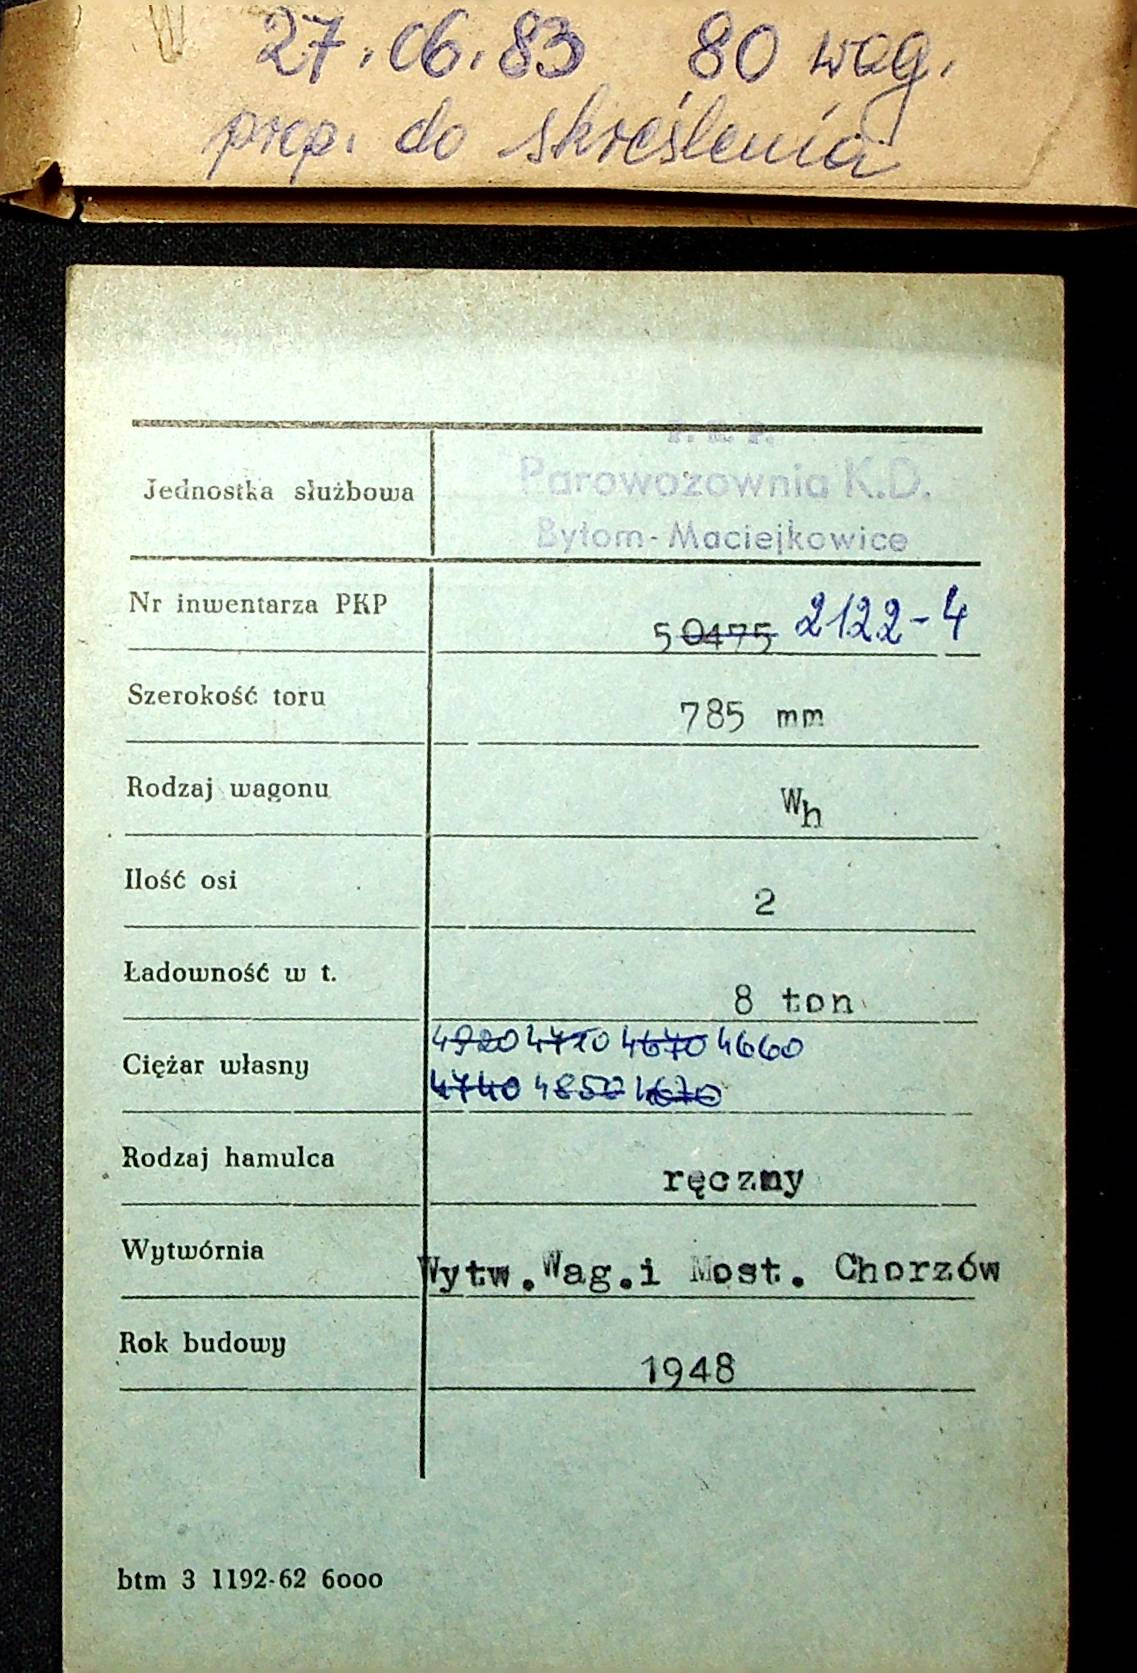 27.06.83 80 wag.
prop. do skreślenia
P. K. P.
Parowozownia K.D.
Bytom-Maciejkowice
Jednostka służbowa
Nr inwentarza PKP 50475 2122-4
Szerokość toru 785 mm
Rodzaj wagonu Wh
Ilość osi 2
Ładowność w t. 8 ton
4920 4710 4670 4660
Ciężar własny
4740 4850 4670
Rodzaj hamulca ręczny
Wytwórnia Wytw.Wag.i Most. Chorzów
Rok budowy 1948
btm 3 1192-62 6000